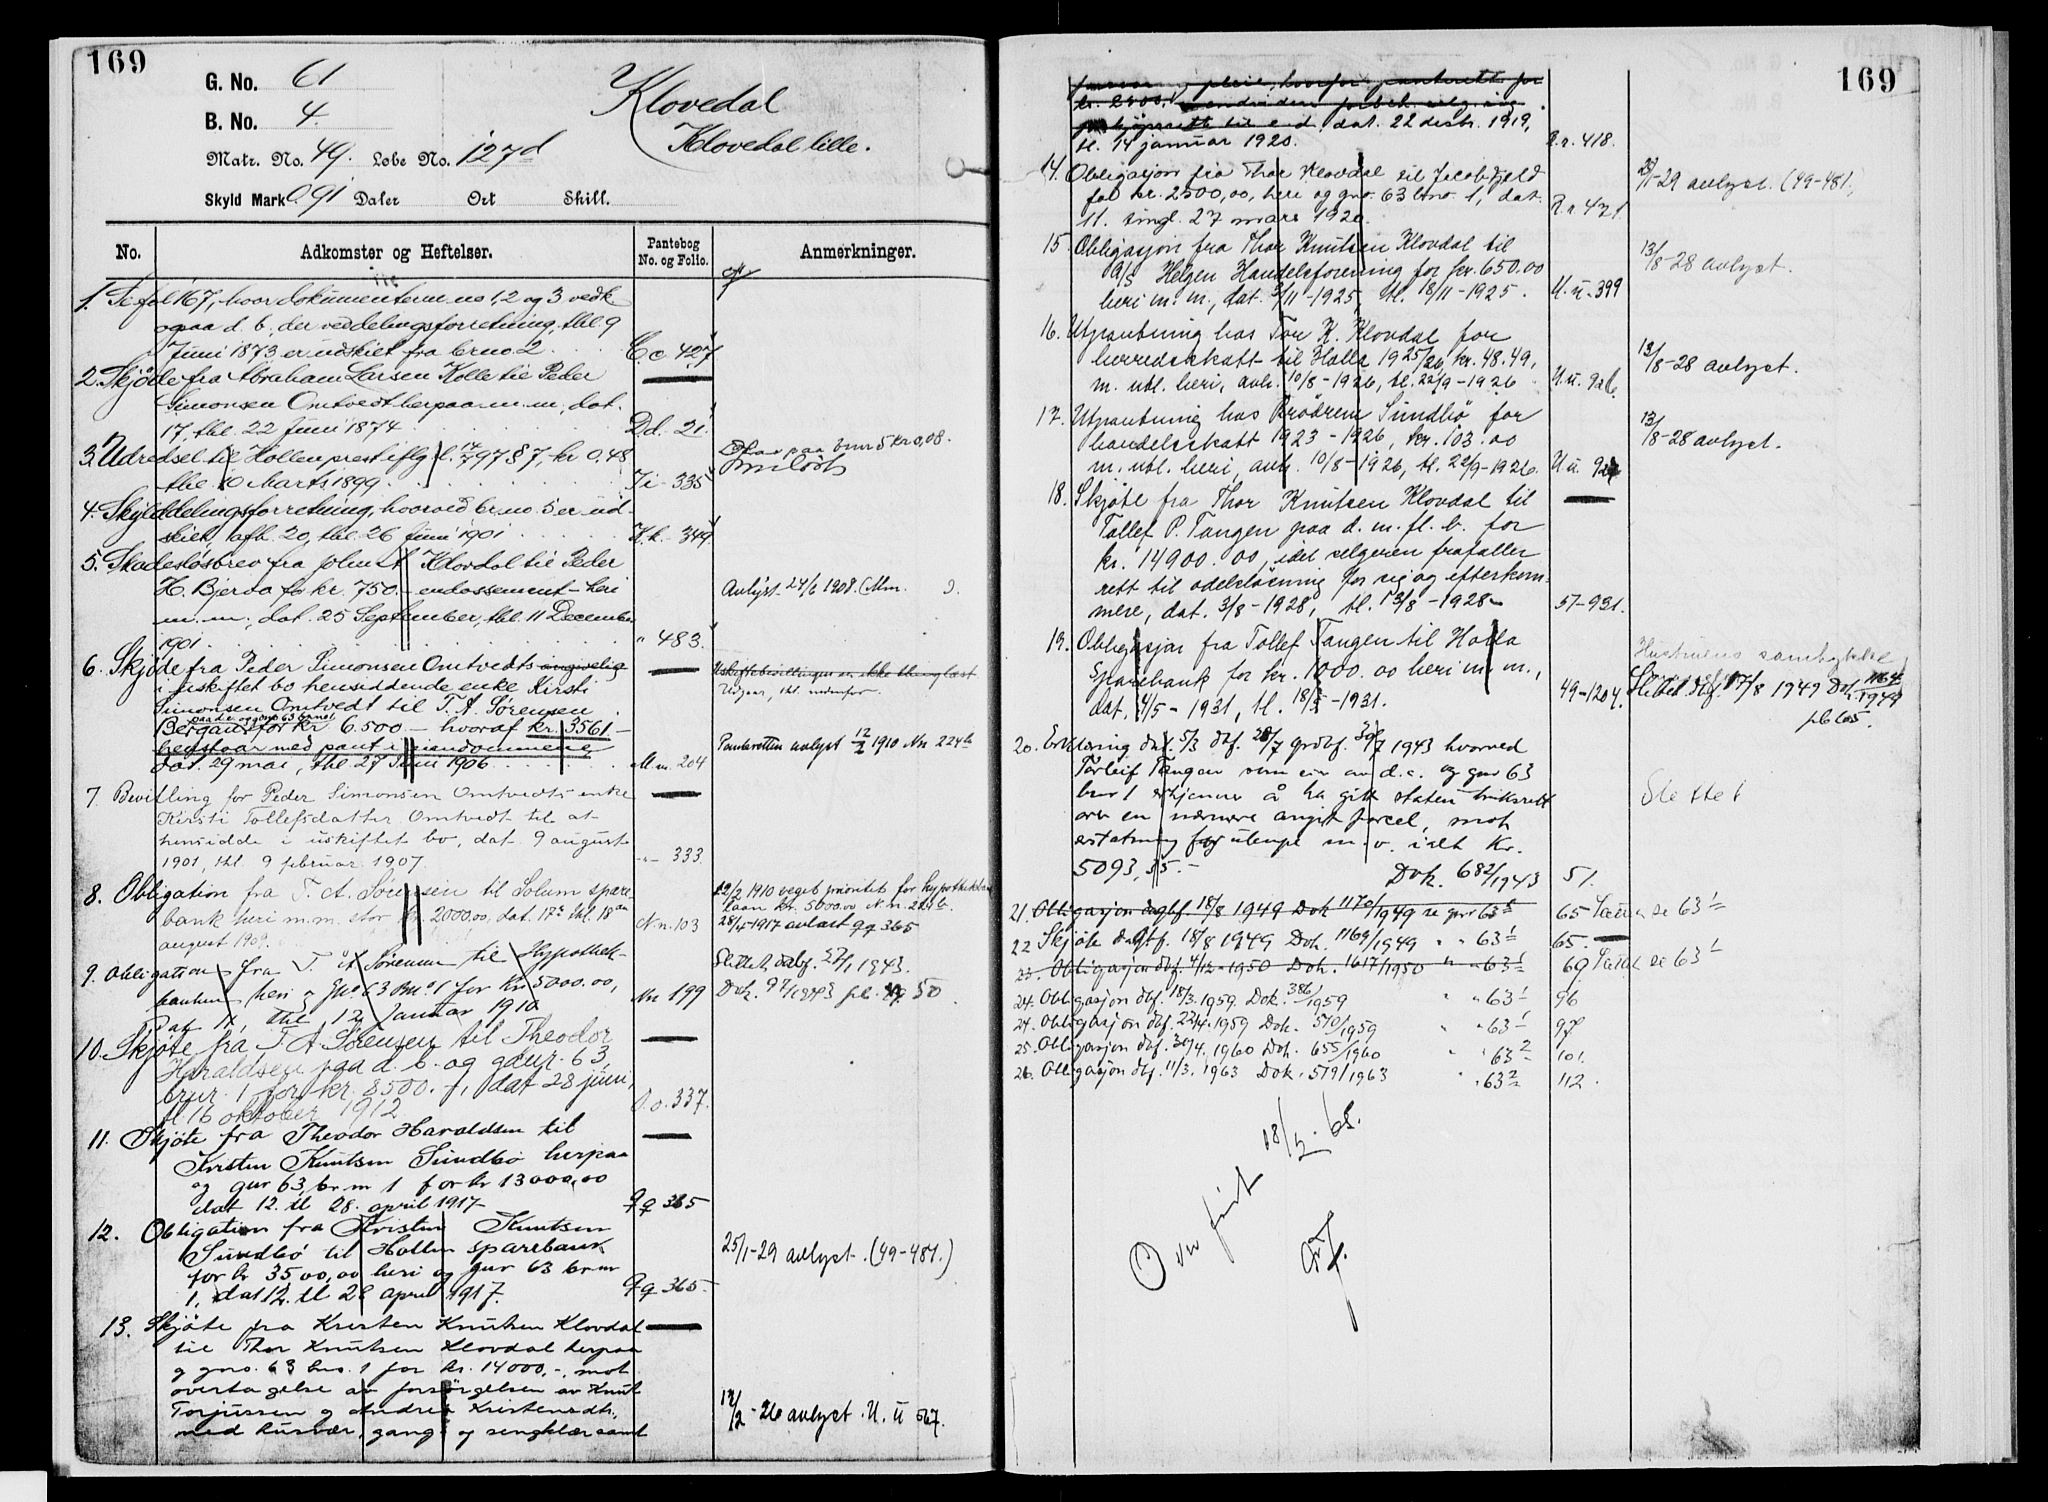 169
G. No. 61
B. No. 4.
Matr. No. 49. Løbe No. 127d
Skyld Mark 0.91 Daler Ort Skill.
Klovedal
Klovedal lille.
No. Adkomster og Heftelser. Pantebog No. og Folio. Anmerkninger.
1. Se fol 167, hvor dokumenterne no 1, 2 og 3 vedk
ogsaa d. b. der ved delingsforretning, thl. 9
Juni 1873 er udskilt fra brno 2. Cc 427
2. Skjøde fra Abraham Larsen Kolle til Peder
Simonsen Omtvedt herpaa m. m., dat.
17, thl. 22 Juni 1874 Dd. 21.
3. Udredsel til Hollen prest iflg l. 17/7 97 § 7, kr 0.48
thl. 10 Marts 1899. Ii 335
Heraf paa brnr 5 kr 0,08.
4. Skylddelingsforretning, hvorved br.no. 5 er ud-
skilt, afh. 20, thl. 26 Juni 1901 K.k. 349
5. Skadesløsbrev fra John A Klovdal til Peder
H. Bjerva for kr. 750.- endossement - heri
m. m., dat. 25 September, thl. 11 December
1901. " 483.
Avlyst 24/6 1908.
6. Skjøde fra Peder Simonsen Omtvedts angivelig
i uskiftet bo hensiddende enke Kirsti
Simonsen Omtvedt til T. A. Sørensen
Bergan for kr 6.500 - hvoraf kr. 3561.-
paa d. e. og gno 63 br no 1
henstaar med pant i eiendommene
dat. 29 mai, thl. 27 Juni 1906 M.m. 204
Uskiftebevillingen er ikke thinglæst
Udgaar, thl. nedenfor.
Panteretten avlyst 12/2 1910 Nn 224b
7. Bevilling for Peder Simonsen Omtvedts enke
Kirsti Tollefsdatter Omtvedt til at
hensidde i uskiftet bo, dat. 9 august
1901, thl. 9 februar 1907. -"- 333.
8. Obligation fra T. A. Sørensen til Solum spare
bank heri m.m. stor kr. 2000.00, dat. 17de thl. 18de
august 1909. N.n. 103
12/2 1910 veget prioritet for hypothekbank
laan kr. 5000.00 N.n. 224b.
28/4-1917 avlæst Qq 365
9. Obligation fra T. A. Sørensen til Hypothek-
banken heri og gno 63 Bno 1 for Kr. 5000.00,
Dat 11, thl 12 Januar 1910 Nn 199
Slettet dbf. 27/1 1943.
Dok. 97/1943 pl. 50
10. Skjøte fra T. A. Sørensen til Theodor
Haraldsen paa d. b. og gaur. 63
brnr. 1 for kr. 8500.-, dat 28 juni,
tl. 16 oktober 1912 O.o. 337.
11. Skjøte fra Theodor Haraldsen til
Kristen Knutsen Sundbø herpaa
og gnr 63 br nr 1 for kr 13000,00
dat 12. tl 28. april 1917 Qq 365
12. Obligation fra Kristen Knutsen
Sundbø til Hollen sparebank
for kr 3500,00 heri og gnr 63 brnr
1, dat 12. tl 28 april 1917. Qq 365.
25/1-29 avlyst. (49-481.)
13. Skjøte fra Kristen Knutsen Klovdal
til Thor Knutsen Klovdal herpaa
og gno. 63 bno. 1 for kr. 14000.-, mot
overtagelse av forsørgelsen av Knut
Torjussen og Andrea Kristensdtr.,
med husvær, gang og sengklær samt
12/2-26 avlyst. U. u 567.
169
pleie, hvorfor panterett for
kr. 2500.
til e. d. dat. 22 desbr. 1919,
tl. 14 januar 1920. R.r. 418.
14. Obligasjon fra Thor Klovdal til Jacob Fjeld
for kr. 2500,00, heri og gno. 63 bno. 1, dat.
11. tingl. 27 mars 1920. R.r 471
25/1-29 avlyst. (49-481.)
15. Obligasjon fra Thor Knutsen Klovdal til
A/S Helgen Handelsforening for kr. 650.00
heri m. m., dat. 3/11-1925, tl. 18/11-1925. U.u. 399
13/8-28 avlyst.
16. Utpantning hos Tor K. Klovdal for
herredsskatt til Holla 1925/26, kr. 48.49,
m. utl. heri, avh. 10/8-1926, tl. 22/9-1926. U.u. 926.
13/8-28 avlyst.
17. Utpantning hos Brødrene Sundbø for
handelsskatt 1923-1926, kr. 103.00
m. utl. heri, avh. 10/8-1926, tl. 22/9-1926. U.u. 927
13/8-28 avlyst.
18. Skjøte fra Thor Knutsen Klovdal til
Tollef P. Tangen paa d. m. fl. b. for
kr. 14900.00, idet selgeren frafaller
rett til odelsløsning for sig og efterkom-
mere, dat. 3/8-1928, tl. 13/8-1928. 57-931.
19. Obligasjon fra Tollef Tangen til Holla
Sparebank for kr. 1000.00 heri m. m.,
dat. 4/5-1931, tl. 18/5-1931. 49-1204.
Hustruens samtykke
Slettet dbf. 17/8 1949 Dok 1164/1949
pl. 65.
20. Erklæring dat. 5/3 dbf. 28/7 grdbf. 30/7 1943 hvorved
Torleif Tangen som eier av d.e. og gnr 63
bnr 1 erkjenner å ha gitt staten bruksrett
over en nærmere angitt parcel, mot
erstatning for ulempe m.v. i alt kr.
5093,35.- Dok. 682/1943 51.
Slettet
21. Obligasjon dagbf. 18/8 1949 Dok 1170/1949 se gnr 63 1 65 Slettet se 63 1
22 Skjøte dagbf. 18/8 1949 Dok. 1169/1949 " " 63 1 65.
23. Obligasjon dbf. 4/12-1950 Dok. 1617/1950 " " 63 1 69 Slettet se 63 1
24. Obligasjon dbf. 18/3.1959. Dok. 386/1959 " " 63 1 96
24. Obligasjon dbf. 22/4.1959 Dok. 510/1959 " " 63 1 97
25. Obligasjon dbf. 30/4. 1960 Dok. 655/1960 " " 63 2 101.
26. Obligasjon dbf. 11/3. 1963 Dok. 519/1963 " " 63 2 112.
Overført 18/5.68.